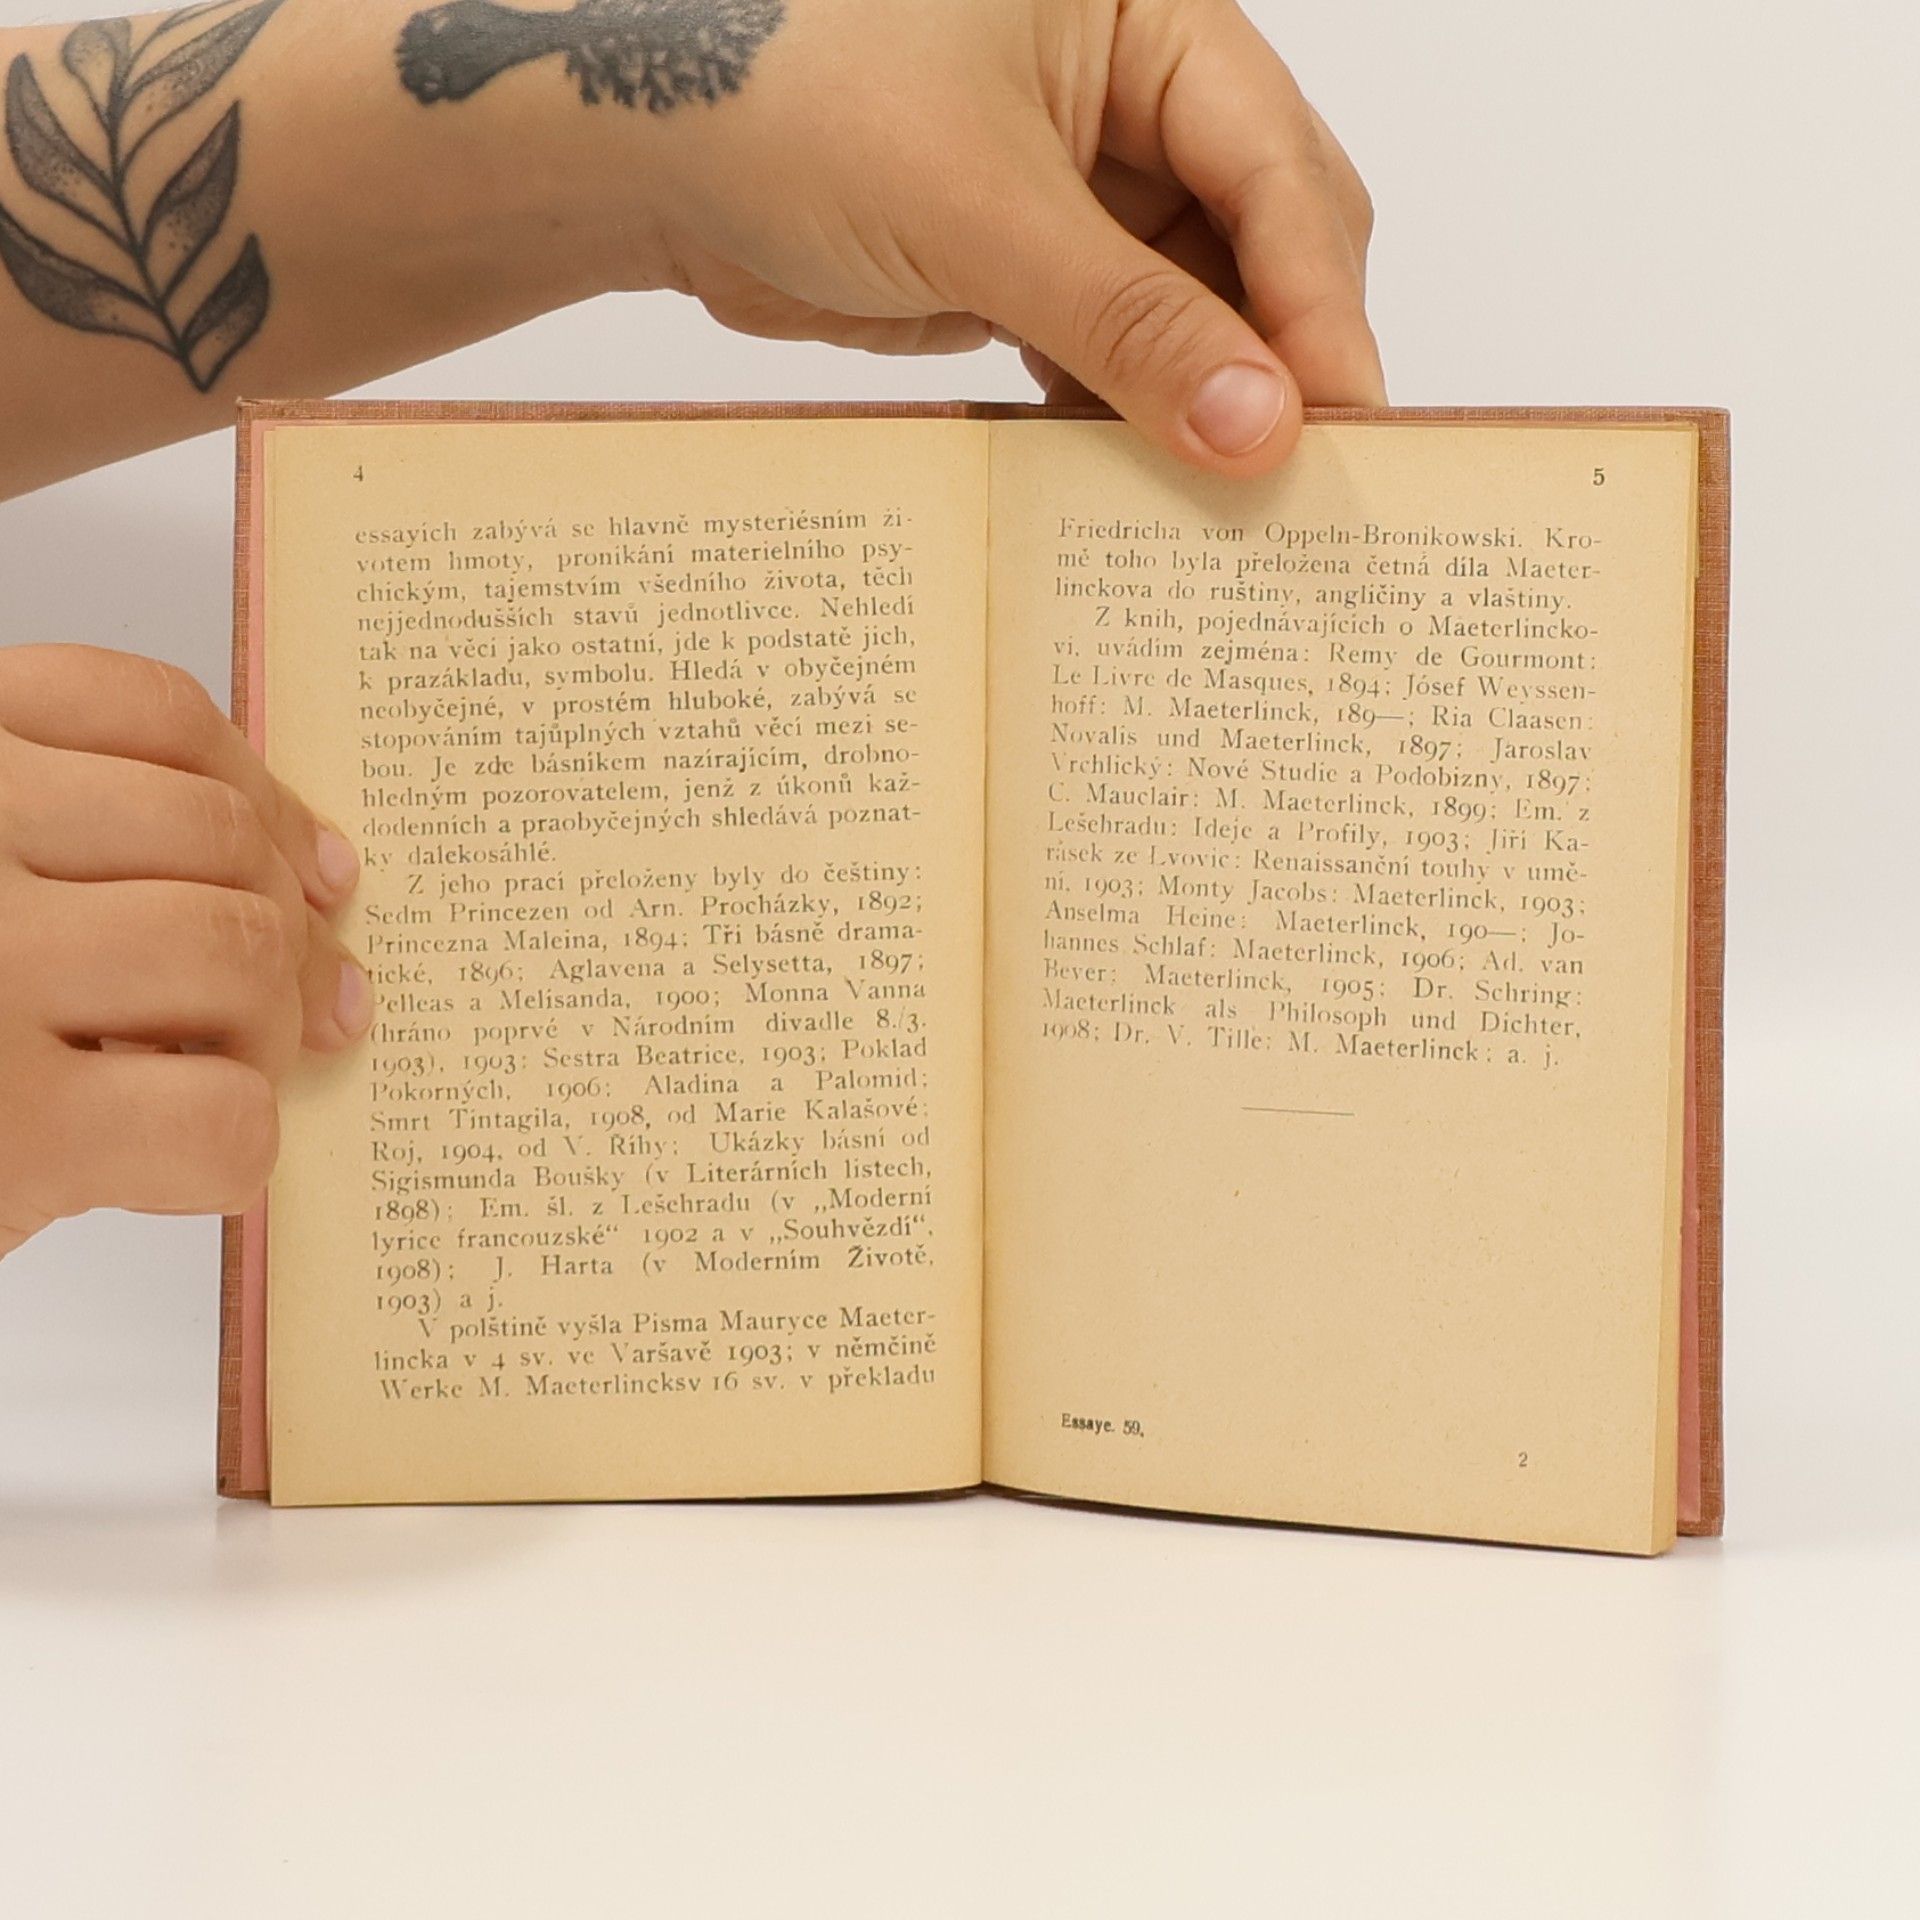 4
essayích zabývá se hlavně mysteriésním ži-
votem hmoty, pronikání materielního psy-
chickým, tajemstvím všedního života, těch
nejjednodušších stavů jednotlivce. Nehledí
tak na věci jako ostatní, jde k podstatě jich,
k prazákladu, symbolu. Hledá v obyčejném
neobyčejné, v prostém hluboké, zabývá se
stopováním tajůplných vztahů věcí mezi se-
bou. Je zde básníkem nazírajícím, drobno-
hledným pozorovatelem, jenž z úkonů kaž-
dodenních a praobyčejných shledává poznat-
ky dalekosáhlé.
Z jeho prací přeloženy byly do češtiny:
Sedm Princezen od Arn. Procházky, 1892;
Princezna Maleina, 1894; Tři básně drama-
tické, 1896; Aglavena a Selysetta, 1897;
Pelleas a Melisanda, 1900; Monna Vanna
(hráno poprvé v Národním divadle 8./3.
1903), 1903; Sestra Beatrice, 1903; Poklad
Pokorných, 1906; Aladina a Palomid;
Smrt Tintagila, 1908, od Marie Kalašové;
Roj, 1904, od V. Říhy; Ukázky básní od
Sigismunda Boušky (v Literárních listech,
1898); Em. šl. z Lešehradu (v „Moderní
lyrice francouzské“ 1902 a v „Souhvězdí“,
1908); J. Harta (v Moderním Životě,
1903) a j.
V polštině vyšla Pisma Mauryce Maeter-
lincka v 4 sv. ve Varšavě 1903; v němčině
Werke M. Maeterlincksv 16 sv. v překladu
5
Friedricha von Oppeln-Bronikowski. Kro-
mě toho byla přeložena četná díla Maeter-
linckova do ruštiny, angličiny a vlaštiny.
Z knih, pojednávajících o Maeterlincko-
vi, uvádím zejména: Remy de Gourmont:
Le Livre de Masques, 1894; Jósef Weyssen-
hoff: M. Maeterlinck, 189—; Ria Claasen:
Novalis und Maeterlinck, 1897; Jaroslav
Vrchlický: Nové Studie a Podobizny, 1897;
C. Mauclair: M. Maeterlinck, 1899; Em. z
Lešehradu: Ideje a Profily, 1903; Jiří Ka-
rásek ze Lvovic: Renaissanční touhy v umě-
ní, 1903; Monty Jacobs: Maeterlinck, 1903;
Anselma Heine: Maeterlinck, 190—; Jo-
hannes Schlaf: Maeterlinck, 1906; Ad. van
Bever: Maeterlinck, 1905; Dr. Schring:
Maeterlinck als Philosoph und Dichter,
1908; Dr. V. Tille: M. Maeterlinck; a. j.
Essaye. 59.
2